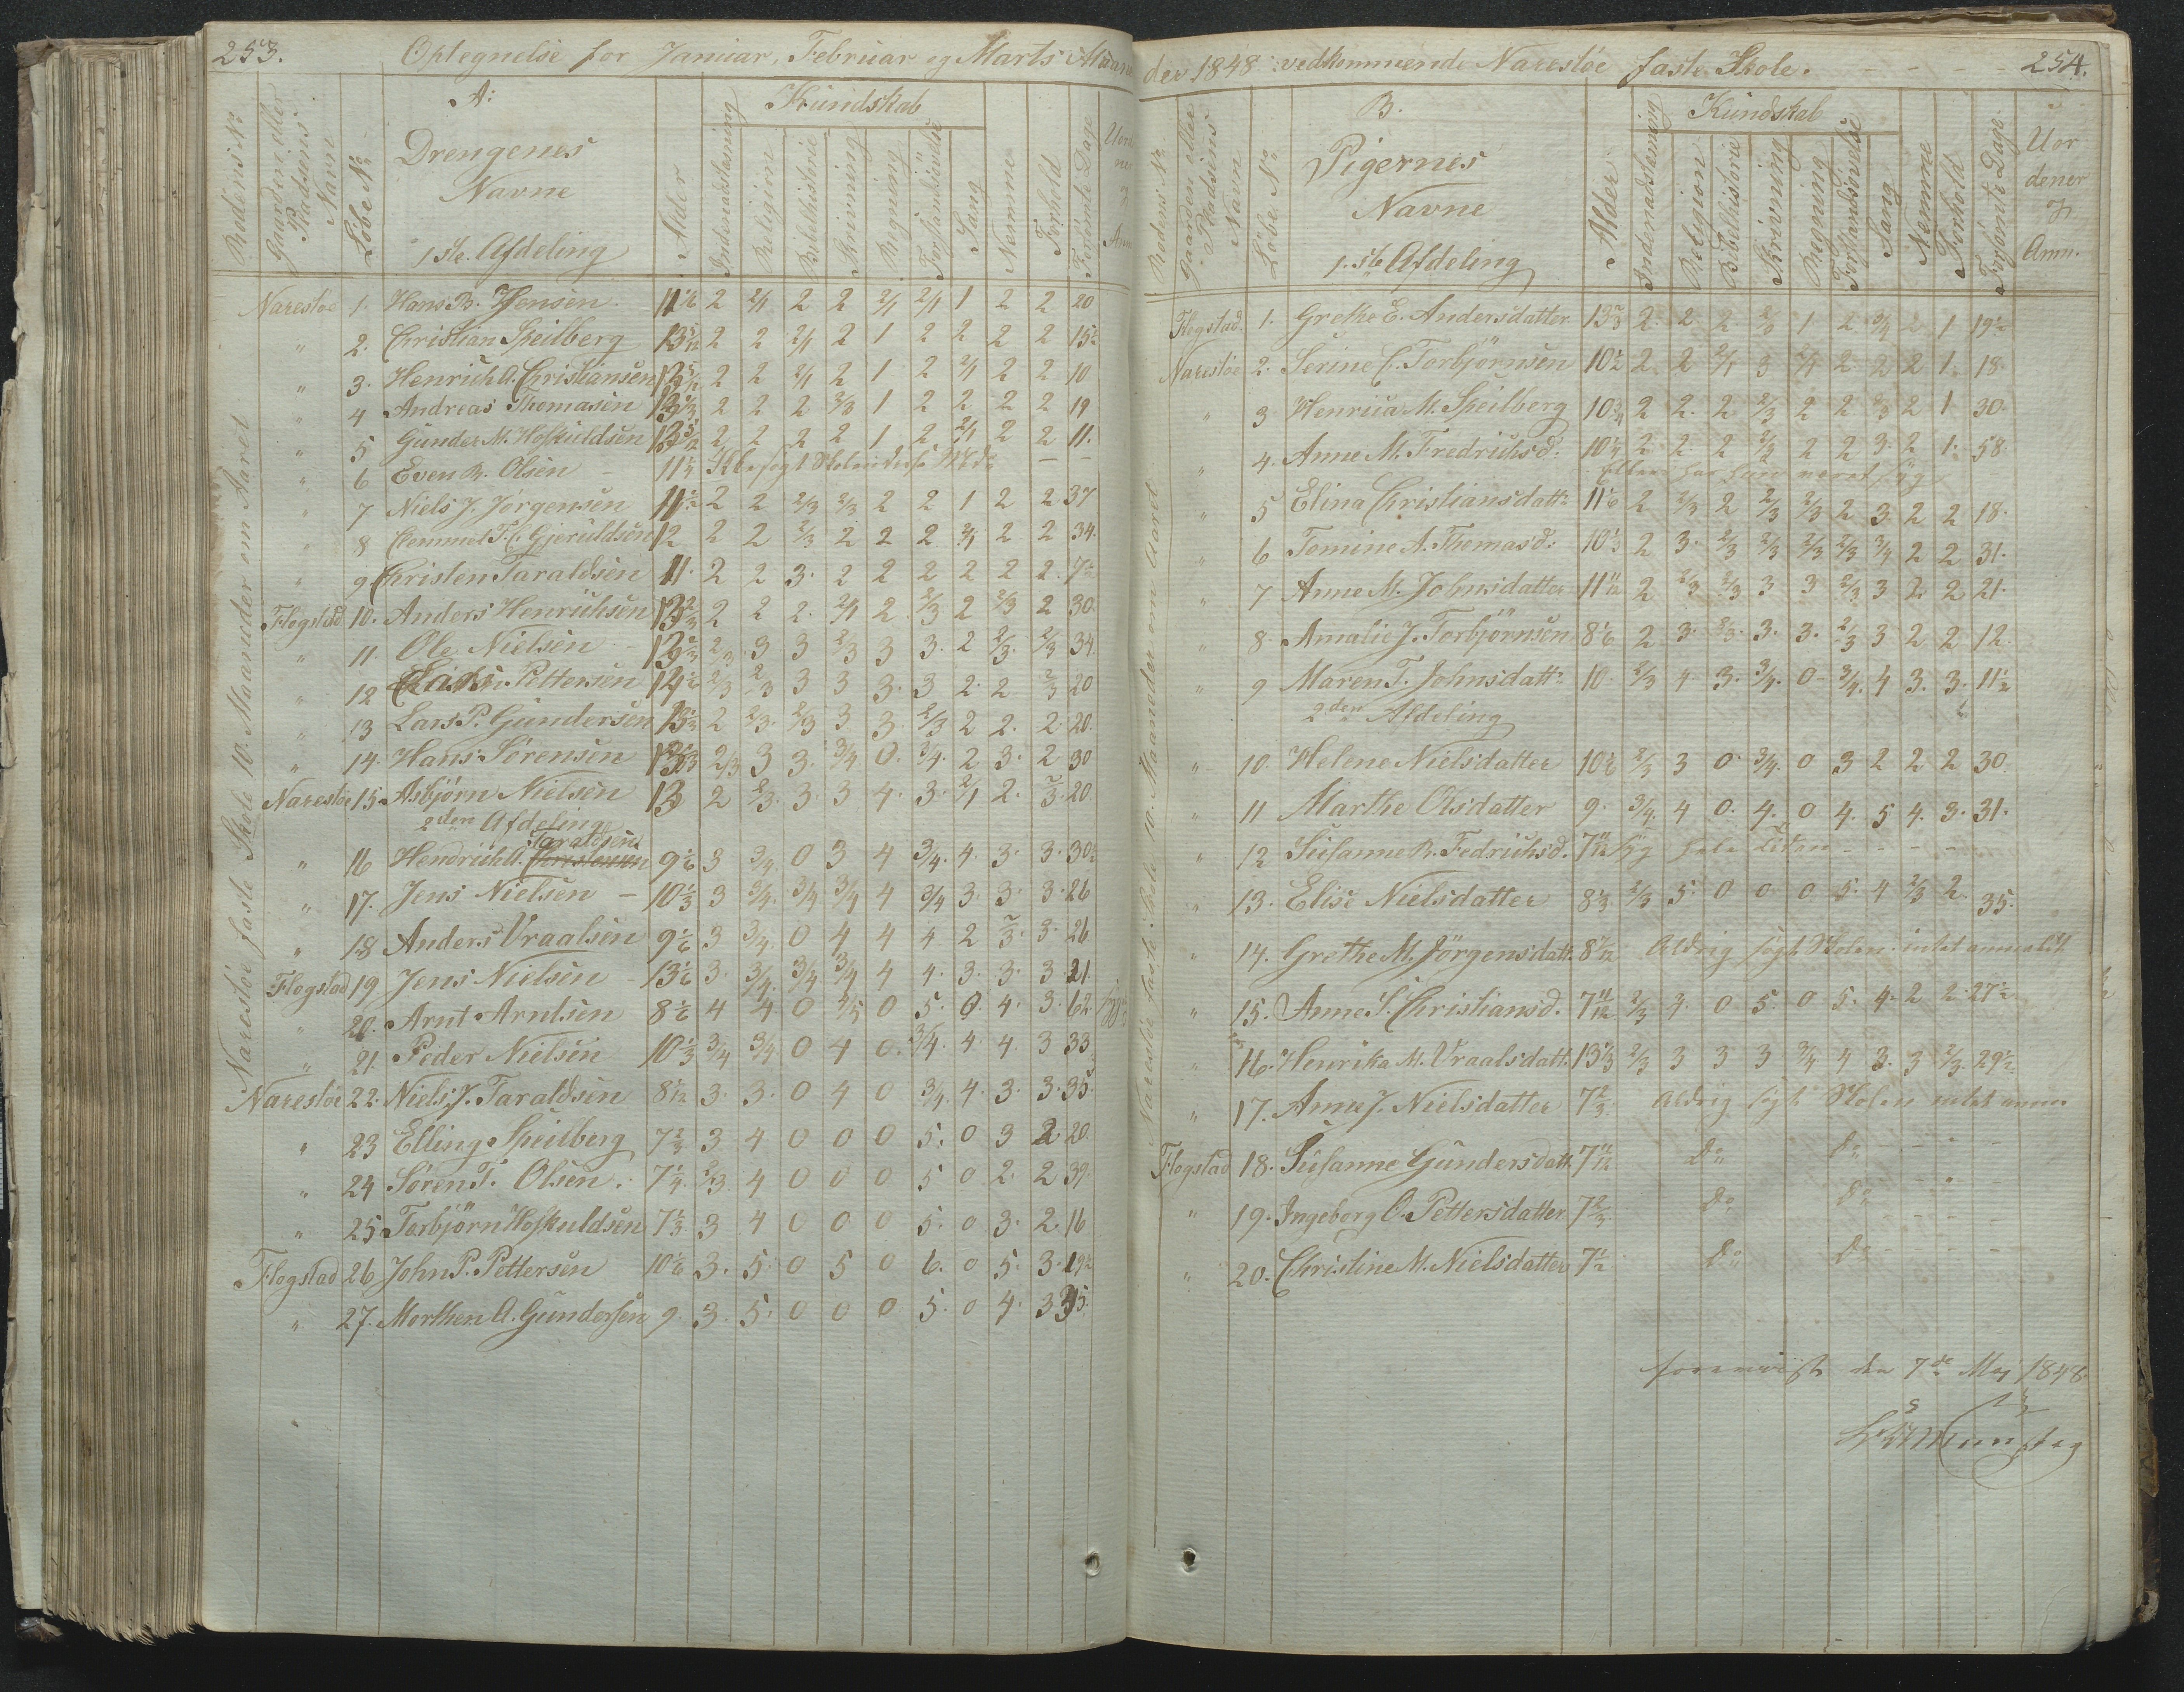 253.
Optegnelse for Januar, Februar og Marts Maane
Rodens No
Gaardens eller Pladsens Navn
Løbe No
A:
Drengenes
Navne
1ste Afdeling
Alder
Kundskab
Indenadslæsning
Religion
Bibelhistorie
Skrivning
Regning
Forstandsøvelse
Sang
Nemme
Forhold
Forsømte Dage
Narestøe faste Skole 10. Maaneder om Aaret
Narestøe 1. Hans B. Jensen 11 1/6 2 2/1 2 2 2/1 2/1 1 2 2 20
" 2. Christian Speilberg 13 5/12 2 2 2/1 2 1 2 2 2 2 15 1/2
" 3. Henrich A. Christiansen 2 2 2/1 2 1 2 2/1 2 2 10
" 4 Andreas Thomasen 2 2 2 2/3 1 2 2 2 2 19
" 5 Gunder M. Hoskuldsen 2 2 2 2 1 2 2/1 2 2 11.
" 6 Even B. Olsen 11 1/4
" 7 Niels J. Jørgensen 11 1/2 2 2 2/3 2/3 2 2 1 2 2 37
" 8 Clemmet T. C. Gjeruldsen 12 2 2 2/3 2 2 2 2/1 2 2 34.
" 9 Christen Taraldsen 11. 2 2 3. 2 2 2 2 2 2. 7 1/2
Flogstad 10. Anders Henrichsen 13 2/3 2 2 2. 2/1 2. 2/3 2 2/3 2 30.
" 11. Ole Nielsen 2/3 3 3 2/3 3 3. 2 2/3. 2/3 34.
" 12 Pettersen 14 1/2 2/3 2/3 3 3 3. 3 2. 2 2/3 20
" 13 Lars P. Gundersen 13 1/3 2 2/3. 2/3 3 3. 2/3 2 2. 2. 20.
" 14. Hans Sørensen 2/3 3 3. 3/4 0. 3/4. 2 3. 2 30
Narestøe 15. Asbjørn Nielsen 13 2 2/3. 3. 3 4. 3. 2/1 2. 2/3. 20
2den Afdeling
Taraldsen
" 16 Hendrich A. 9 1/6 3 3/4 0 3 4 3/4. 4. 3. 3. 30 1/2
" 17. Jens Nielsen – 10 1/3 3 3/4. 3/4 3/4 4 3/4 3. 3. 3. 26
" 18 Anders Vraalsen 9 1/6 3 3/4. 0 4 4 4 2 2/3. 3. 26
Flogstad 19 Jens Nielsen – 13 1/6 3. 3/4. 3/4 3/4 4 4. 3. 3. 3. 21.
" 20. Arnt Arntsen 8 1/6 4 4. 0 4/5 0 5. 0. 4. 3. 62.
" 21. Peder Nielsen 10 1/3 3/4 3/4 0 4 0. 3/4. 4. 4. 3 33
Narestøe 22. Niels J. Taraldsen 8 1/12 3. 3. 0 4 0 3/4. 4. 3. 3. 35.
" 23 Elling Speilberg 7 2/3 3 4 0 0 0 5. 0 3 2 20.
" 24 Søren T. Olsen. 7 1/4. 2/3. 4 0 0 0 5 0 2. 2 39.
" 25. Torbjørn Hoskuldsen 7 1/3 3 4 0 0 0 5. 0 3. 2. 16
Flogstad 26 John P. Pettersen 10 1/6 3. 5. 0 5 0 6. 0 5. 3. 19 1/2
" 27. Morthen A. Gundersen 9. 3. 5. 0 0 0 5. 0 4. 3 35.
der 1848 vedkommende Narestøe faste Skole. 254.
Rodens No
Gaardens eller Pladsens Navn
Løbe No
B.
Pigernes
Navne
1.ste Afdeling
Alder
Kundskab
Indenadslæsning
Religion
Bibelhistorie
Skrivning
Regning
Forstandsøvelse
Sang
Nemme
Forhold
Forsømte Dage
Uor
dener
Anm.
Narestøe faste Skole 10. Maaneder om Aaret
Flogstad. 1. Grethe E. Andersdatter 13 2/3 2. 2. 2. 2/3 1 2 3/4 2 1 19 1/2
Narestøe 2. Serine C. Torbjørnsen 10 1/2 2 2 2/1 3 2/1 2. 2 2 1. 18.
" 3 Henrica M. Speilberg 10 3/4 2 2. 2 2/3 2 2 2/3 2 1 30.
" 4. Anne M. Fredrichsd: 10 1/4 2 2 2 2/3 2 2 3. 2 1. 58.
ellers har hun været syg
" 5 Elina Christiansdattr 11 1/6 2 2/3 2 2/3 2/3 2 3. 2 2 18.
" 6 Tomine A. Thomasd: 10 1/3 2 3. 2/3 2/3 2/3 2/3 3/4 2 2 31.
" 7 Anne M. Johnsdatter 11 11/12 2 2/3 2/3 3 3 2/3 3 2 2 21.
" 8. Amalie J. Torbjørnsen 8 1/6 2 3. 2/3. 3. 3. 2/3 3 2 2 12.
" 9 Maren T. Johnsdattr 10 2/3 4 3. 3/4. 0 3/4. 4 3. 3. 11 1/2
2den Afdeling
" 10. Helene Nielsdatter 10 1/6 2/3 3 0. 3/4. 0 3 2 2 2 30.
" 11 Marthe Olsdatter 9. 3/4. 4 0. 4. 0 4. 5 4. 3. 31.
" 12 Susanne B. Fedrichsd. 7 11/12 syg hele Tiden – – –
" 13. Elise Nielsdatter 8 1/3 2/3 5. 0 0 0 5. 4 2/3 2. 35.
" 14. Grethe M. Jørgensdatt. 8 1/12 Aldrig søgt Skolen intet anmeldt
" 15. Anne S. Christiansd. 7 11/12 2/3 4. 0 5. 0 5. 4. 2 2. 27 1/2
" 16. Henrika M. Vraalsdatt. 13 1/3 2/3 3 3 3 3/4 4 3. 3 2/3. 29 1/2
" 17. Anne J. Nielsdatter 7 2/3. Aldrig søgt Skolen intet anm
Flogstad 18. Susanne Gundersdatt. 7 11/12 Do Do – –
" 19. Ingeborg O. Pettersdatter 7 2/3 Do Do – –
" 20. Christine M. Nielsdatter 7 1/2 Do Do – – –
foreviist den 7de Maj 1848.